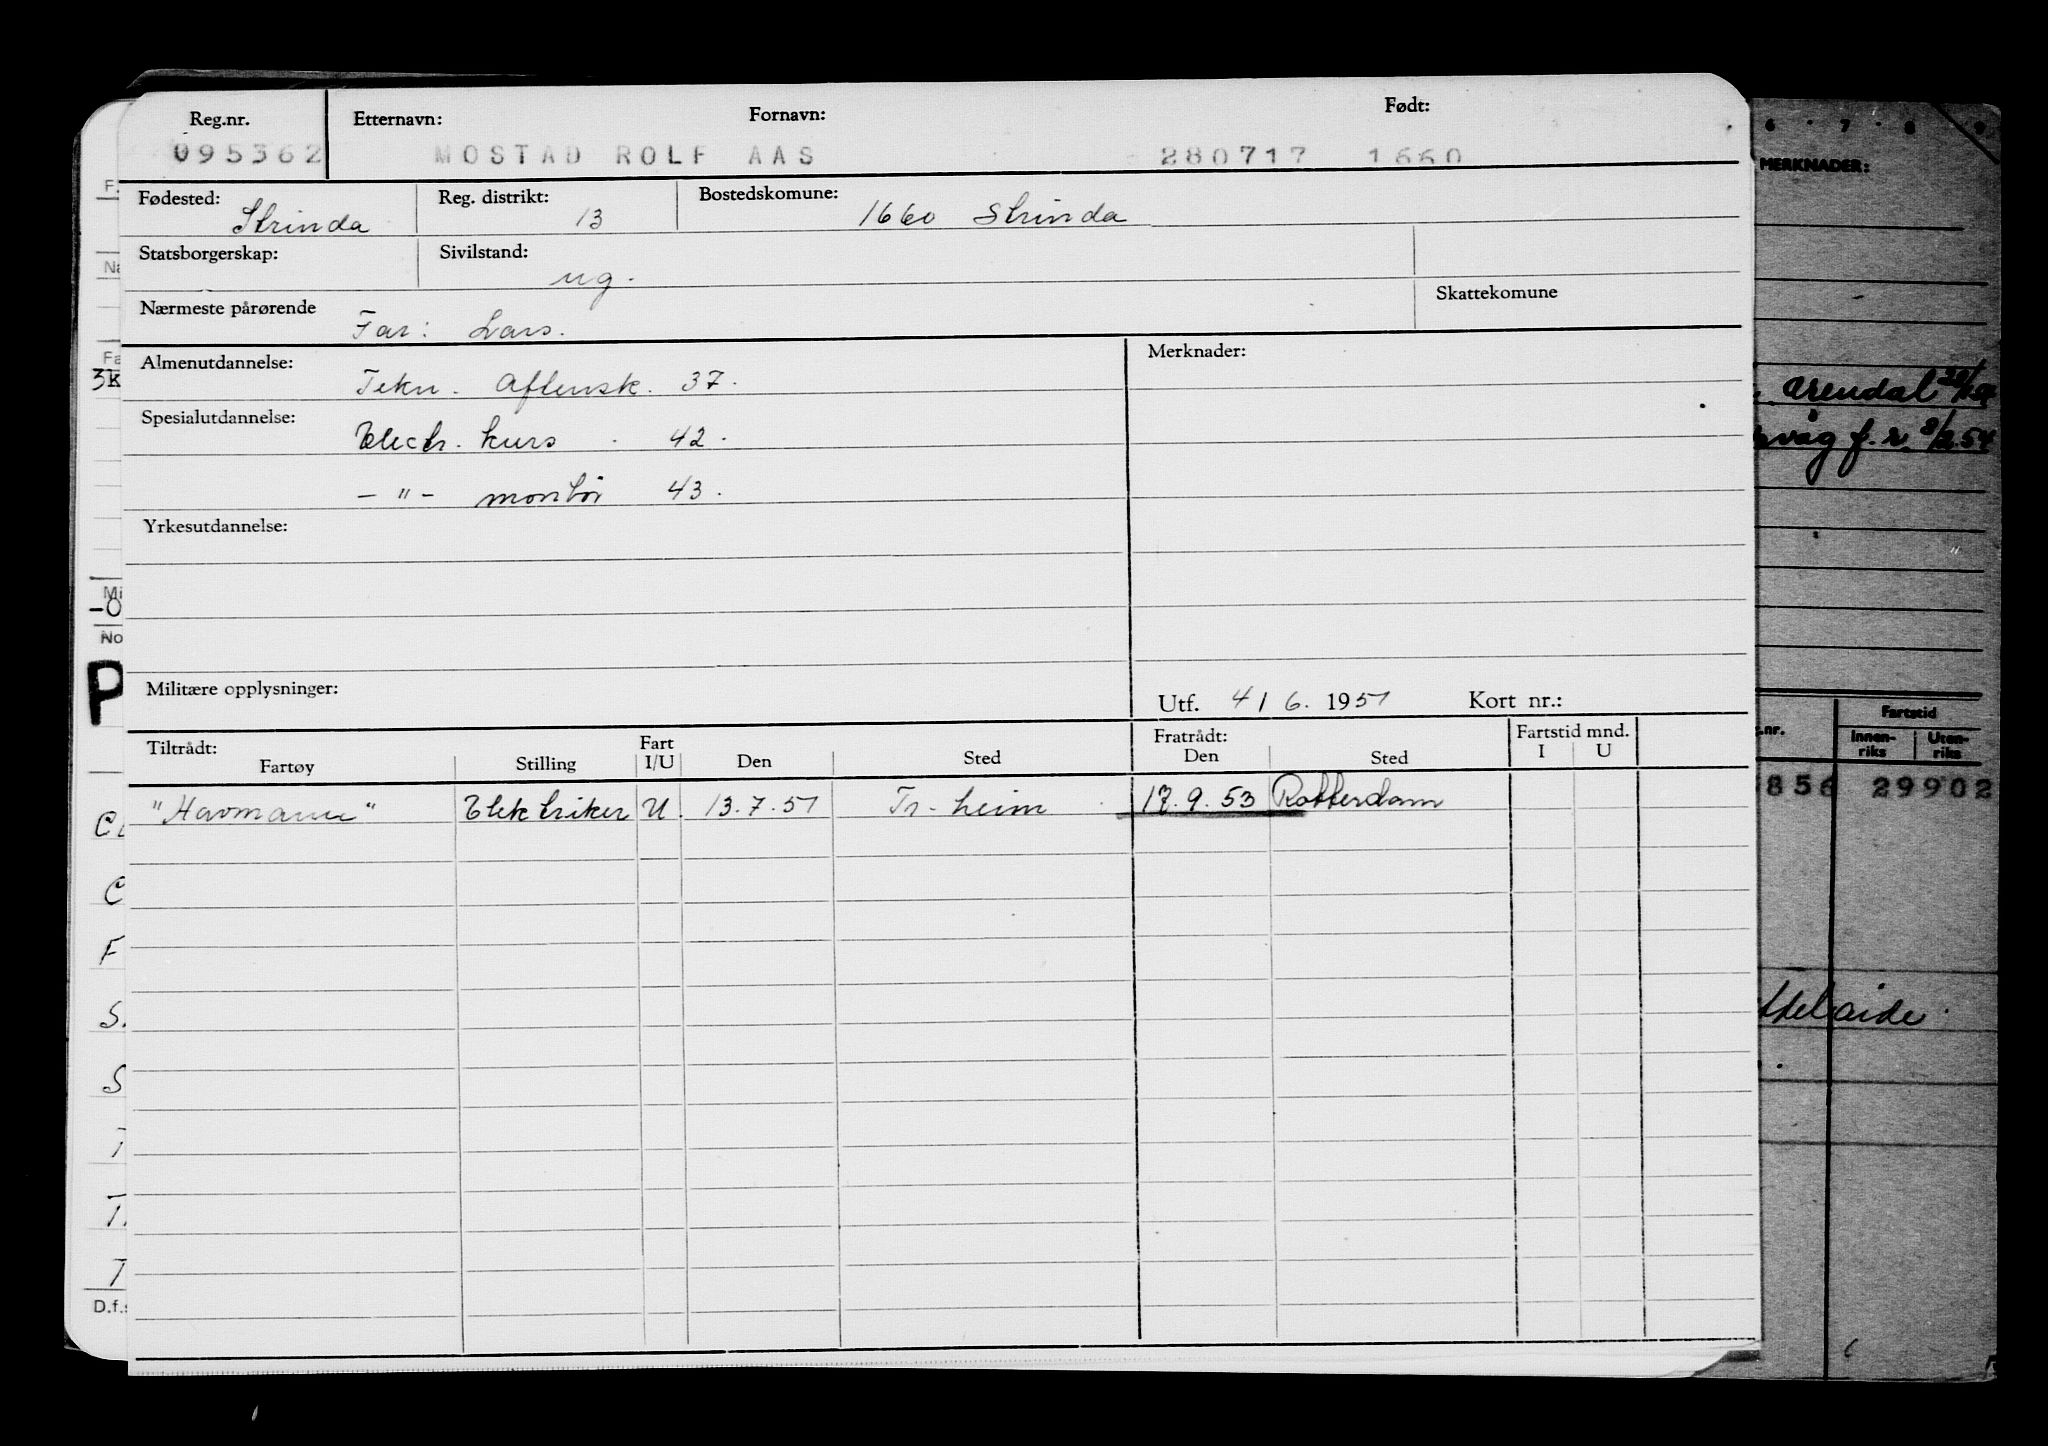 Reg.nr. Etternavn: Fornavn: Født:
095362 MOSTAD ROLF AAS 280717 1660
Fødested: Strinda Reg. distrikt: 13 Bostedskomune: 1660 Strinda
Statsborgerskap: Sivilstand: ug.
Nærmeste pårørende Far: Lars. Skattekomune
Almenutdannelse: Tekn. Aftensk. 37. Merknader:
Spesialutdannelse: Electr. kurs 42.
-"- montør 43.
Yrkesutdannelse:
Militære opplysninger: Utf. 4/6. 1951 Kort nr.:
Tiltrådt: Fratrådt: Fartstid mnd.
Fartøy Stilling Fart I/U Den Sted Den Sted I U
"Havmann" Elektriker U. 13.7.51 Tr.heim 17.9.53 Rotterdam
6 7 8 9
MERKNADER:
Arendal
våg f.r. 8/2.54
Fartstid
.nr. Innenriks Utenriks
856 29902
delaide.
F.
Na
Fa
3K
Mi
-0
No
P
C
F
S.
S
T
T.
T
D.f.s